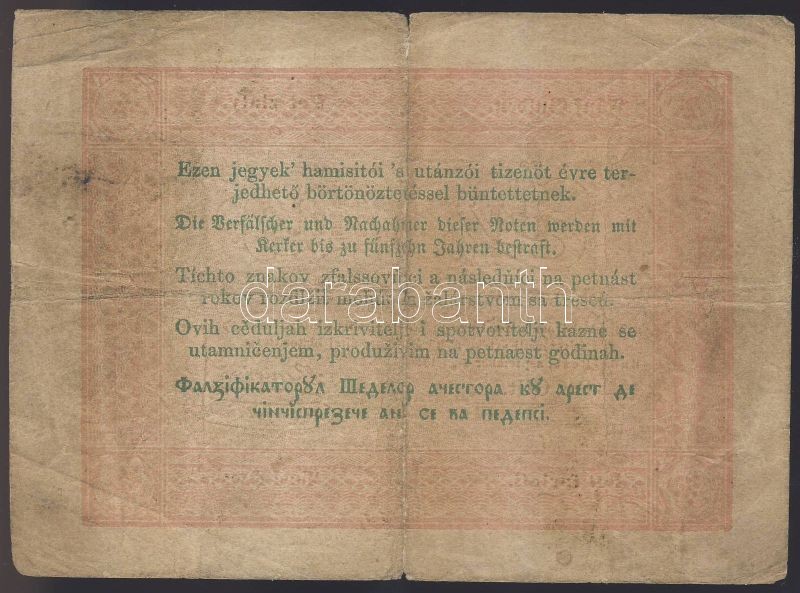 Ezen jegyek' hamisitói 's utánzói tizenöt évre ter-
jedhető börtönöztetéssel büntettetnek.
Die Verfälscher und Nachahmer dieser Noten werden mit
Kerker bis zu fünfzehn Jahren bestraft.
Tíchto znákov zfalssovňíci a následňíci na petnást
rokov
žalárstvom sa tresců.
darabanth
Ovih cėduljah izkrivitelji i spotvoritelji kazne se
utamničenjem, produživim na petnaest godinah.
Фалциfiкаторꙋл Шеделор ачестора кꙋ арест де
чiнчiспрезече анĭ се ва педепсi.